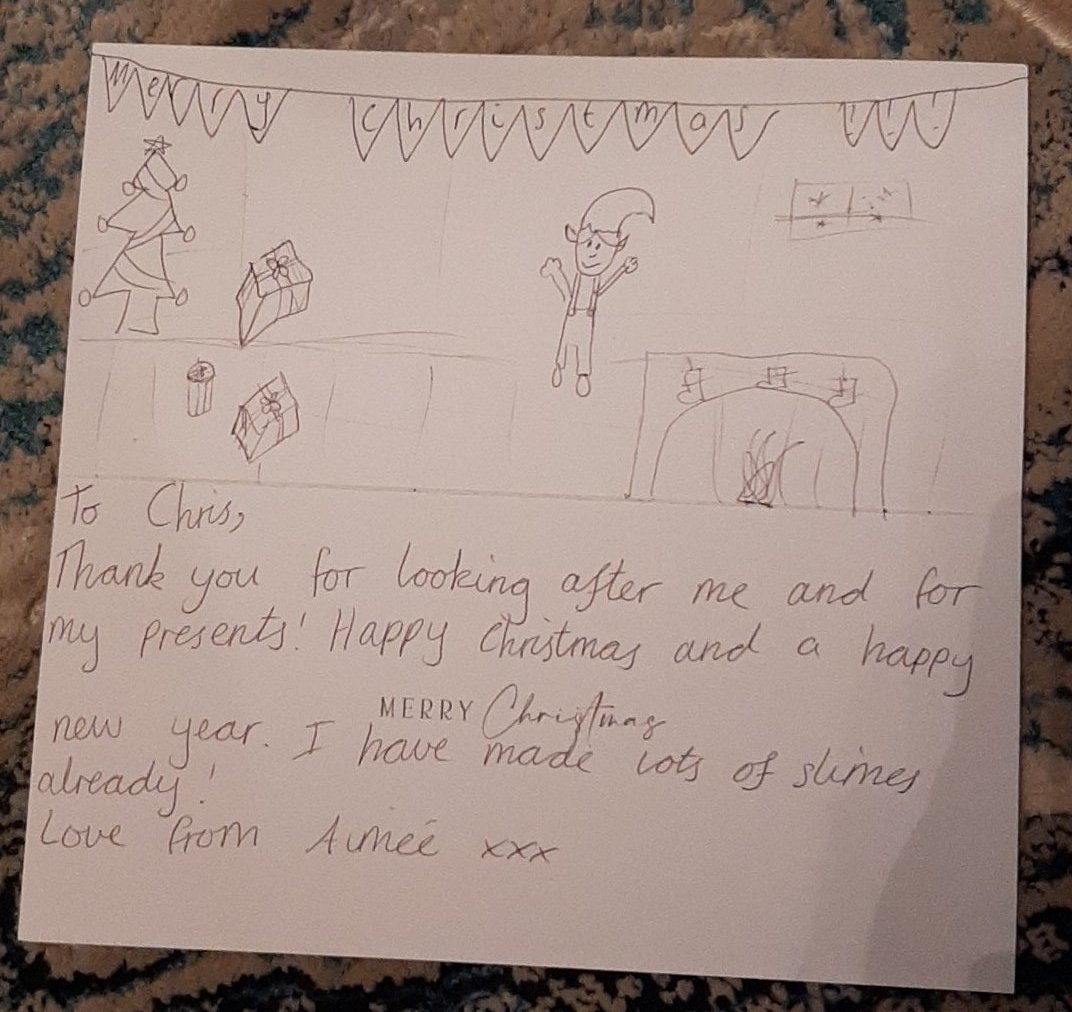 Merry Christmas !!!
To Chris,
Thank you for looking after me and for
my presents! Happy Christmas and a happy
MERRY Christmas
new year. I have made lots of slimes
already!
Love from Aimée xxx